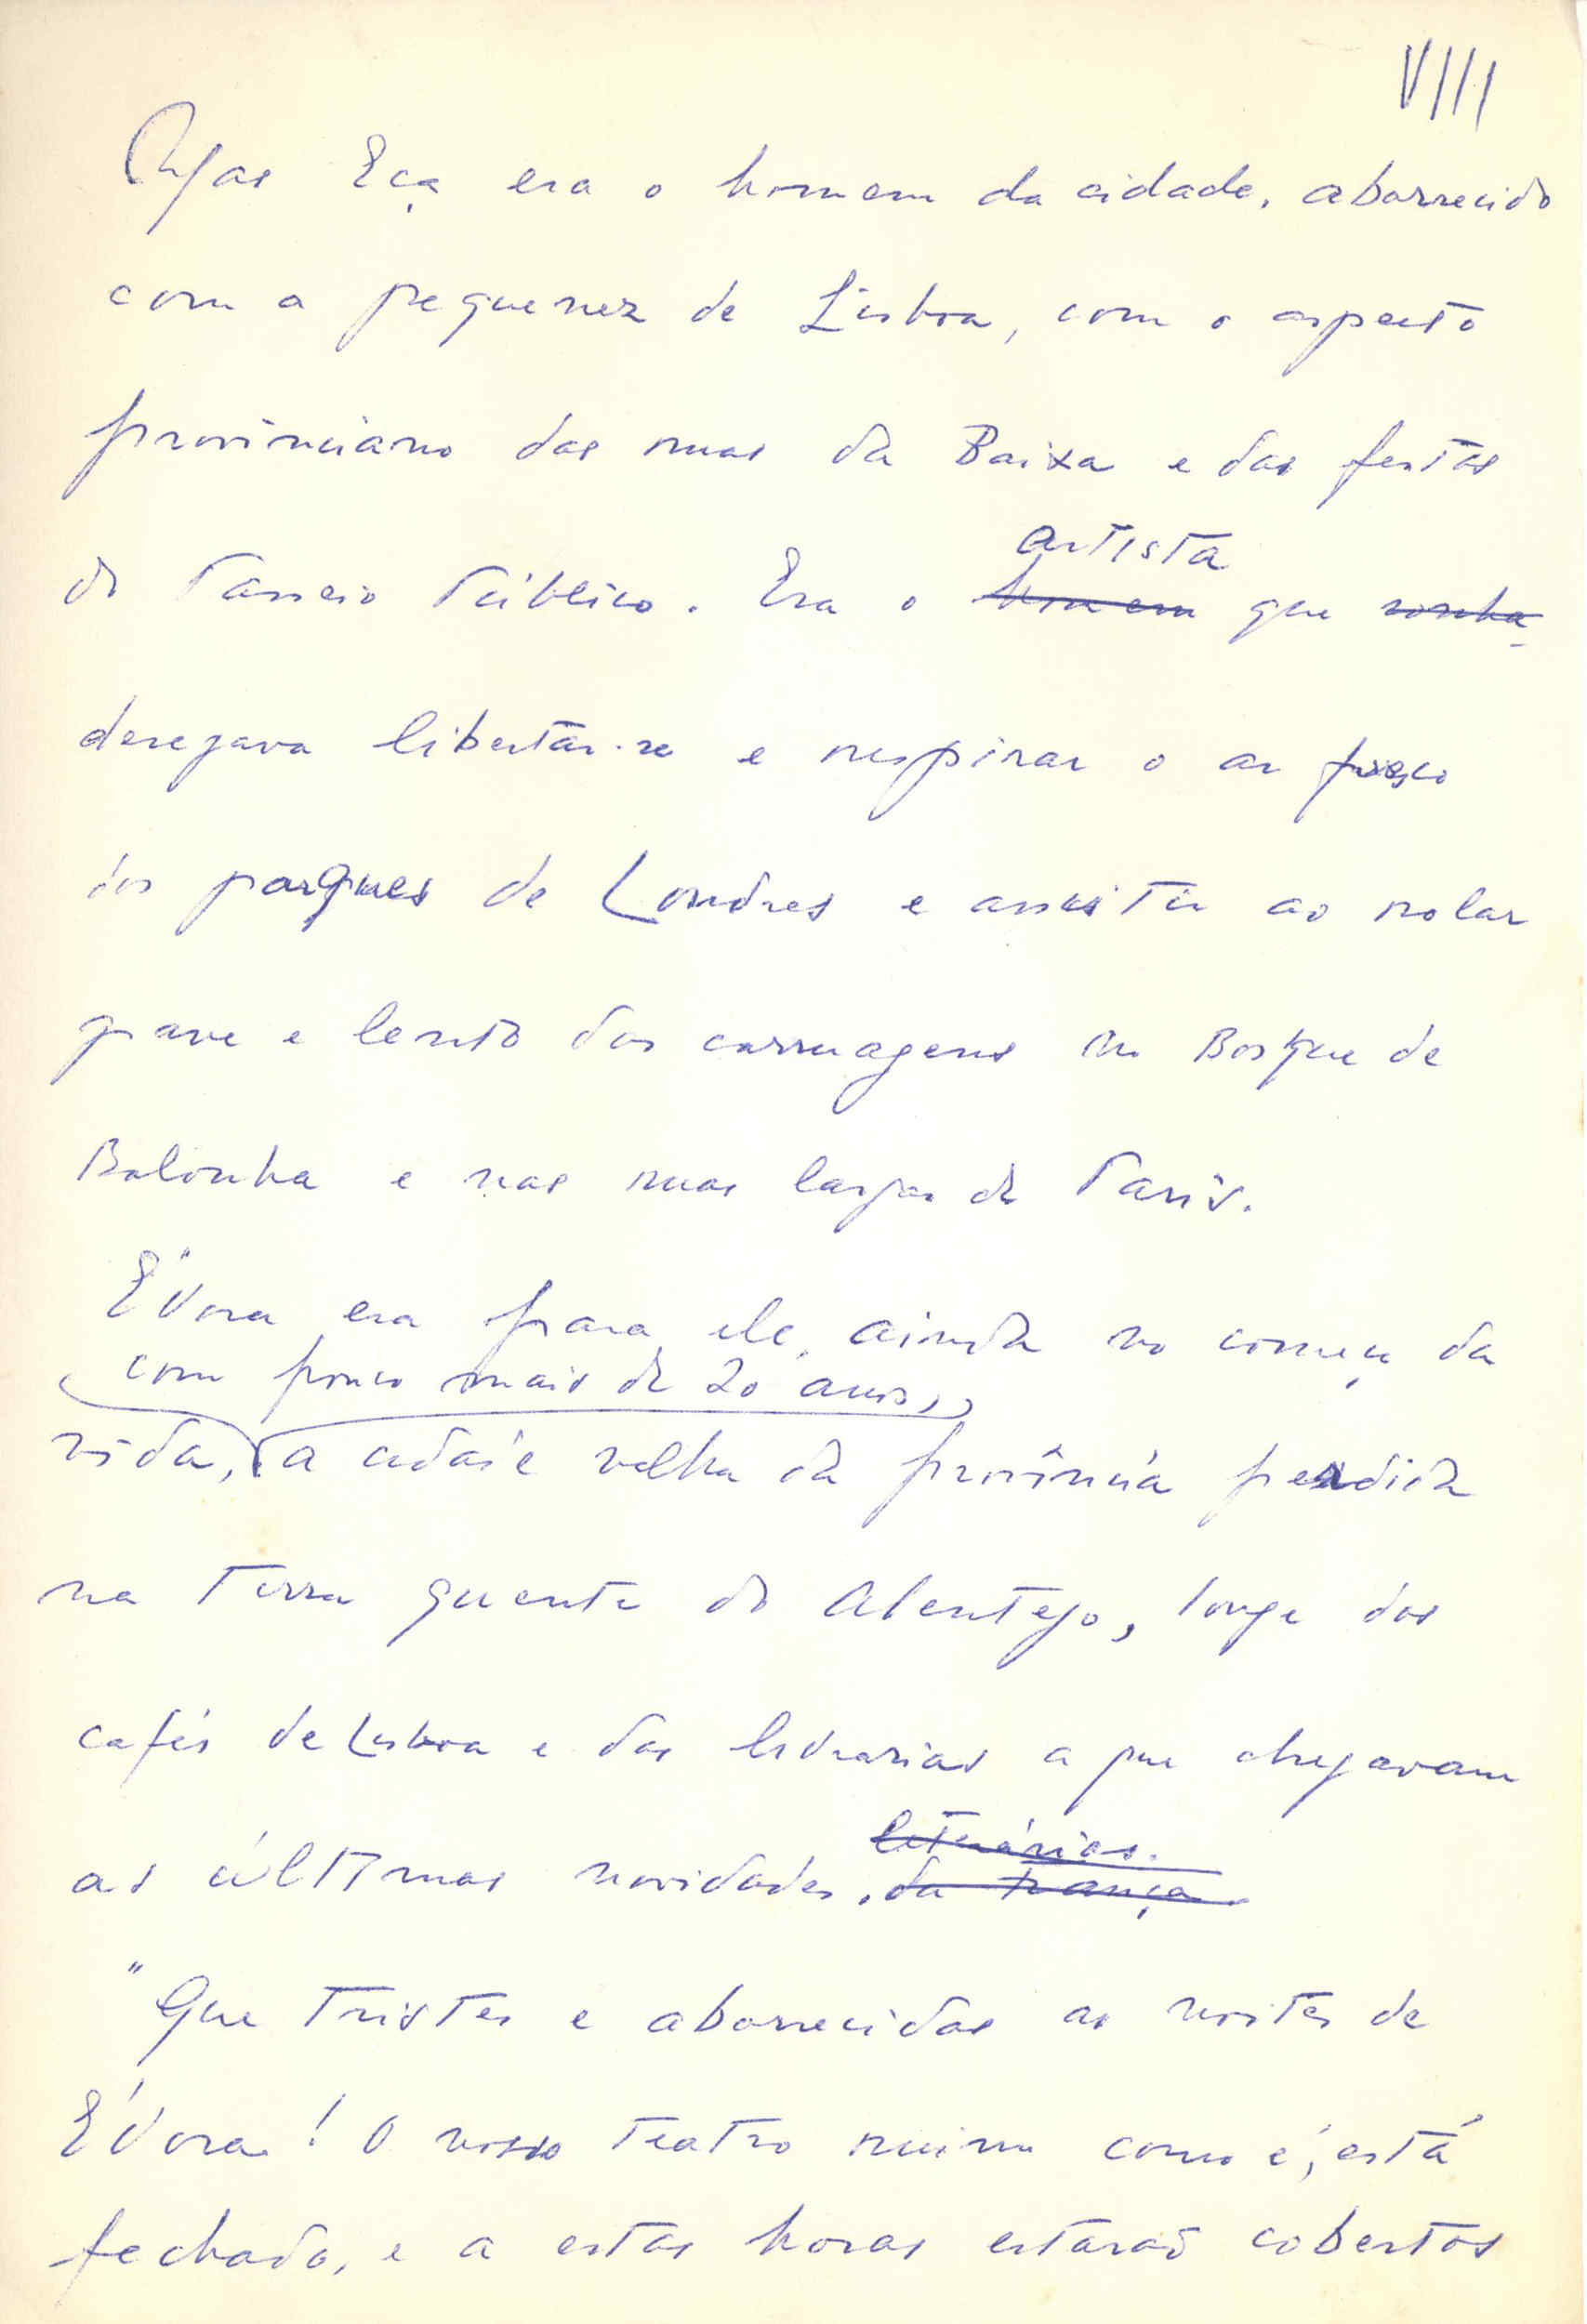 VIII
Mas Eça era o homem da cidade, aborrecido
com a pequenez de Lisboa, com o aspecto
provinciano das ruas da Baixa e das festas
do Passeio Público. Era o ~~homem~~ artista que ~~sonha-~~
desejava libertar-se e respirar o ar fresco
dos parques de Londres e assistir ao rolar
grave e lento das carruagens no Bosque de
Bolonha e nas ruas largas de Paris.
Évora era para ele, ainda no começo da
com pouco mais de 20 anos,
vida, a cidade velha da província perdida
na terra quente do Alentejo, longe dos
cafés de Lisboa e das livrarias a que chegavam
~~literárias.~~
as últimas novidades. ~~da França.~~
"Que tristes e aborrecidas as noites de
Évora! O nosso teatro ruim como é, está
fechado, e a estas horas estarão cobertos